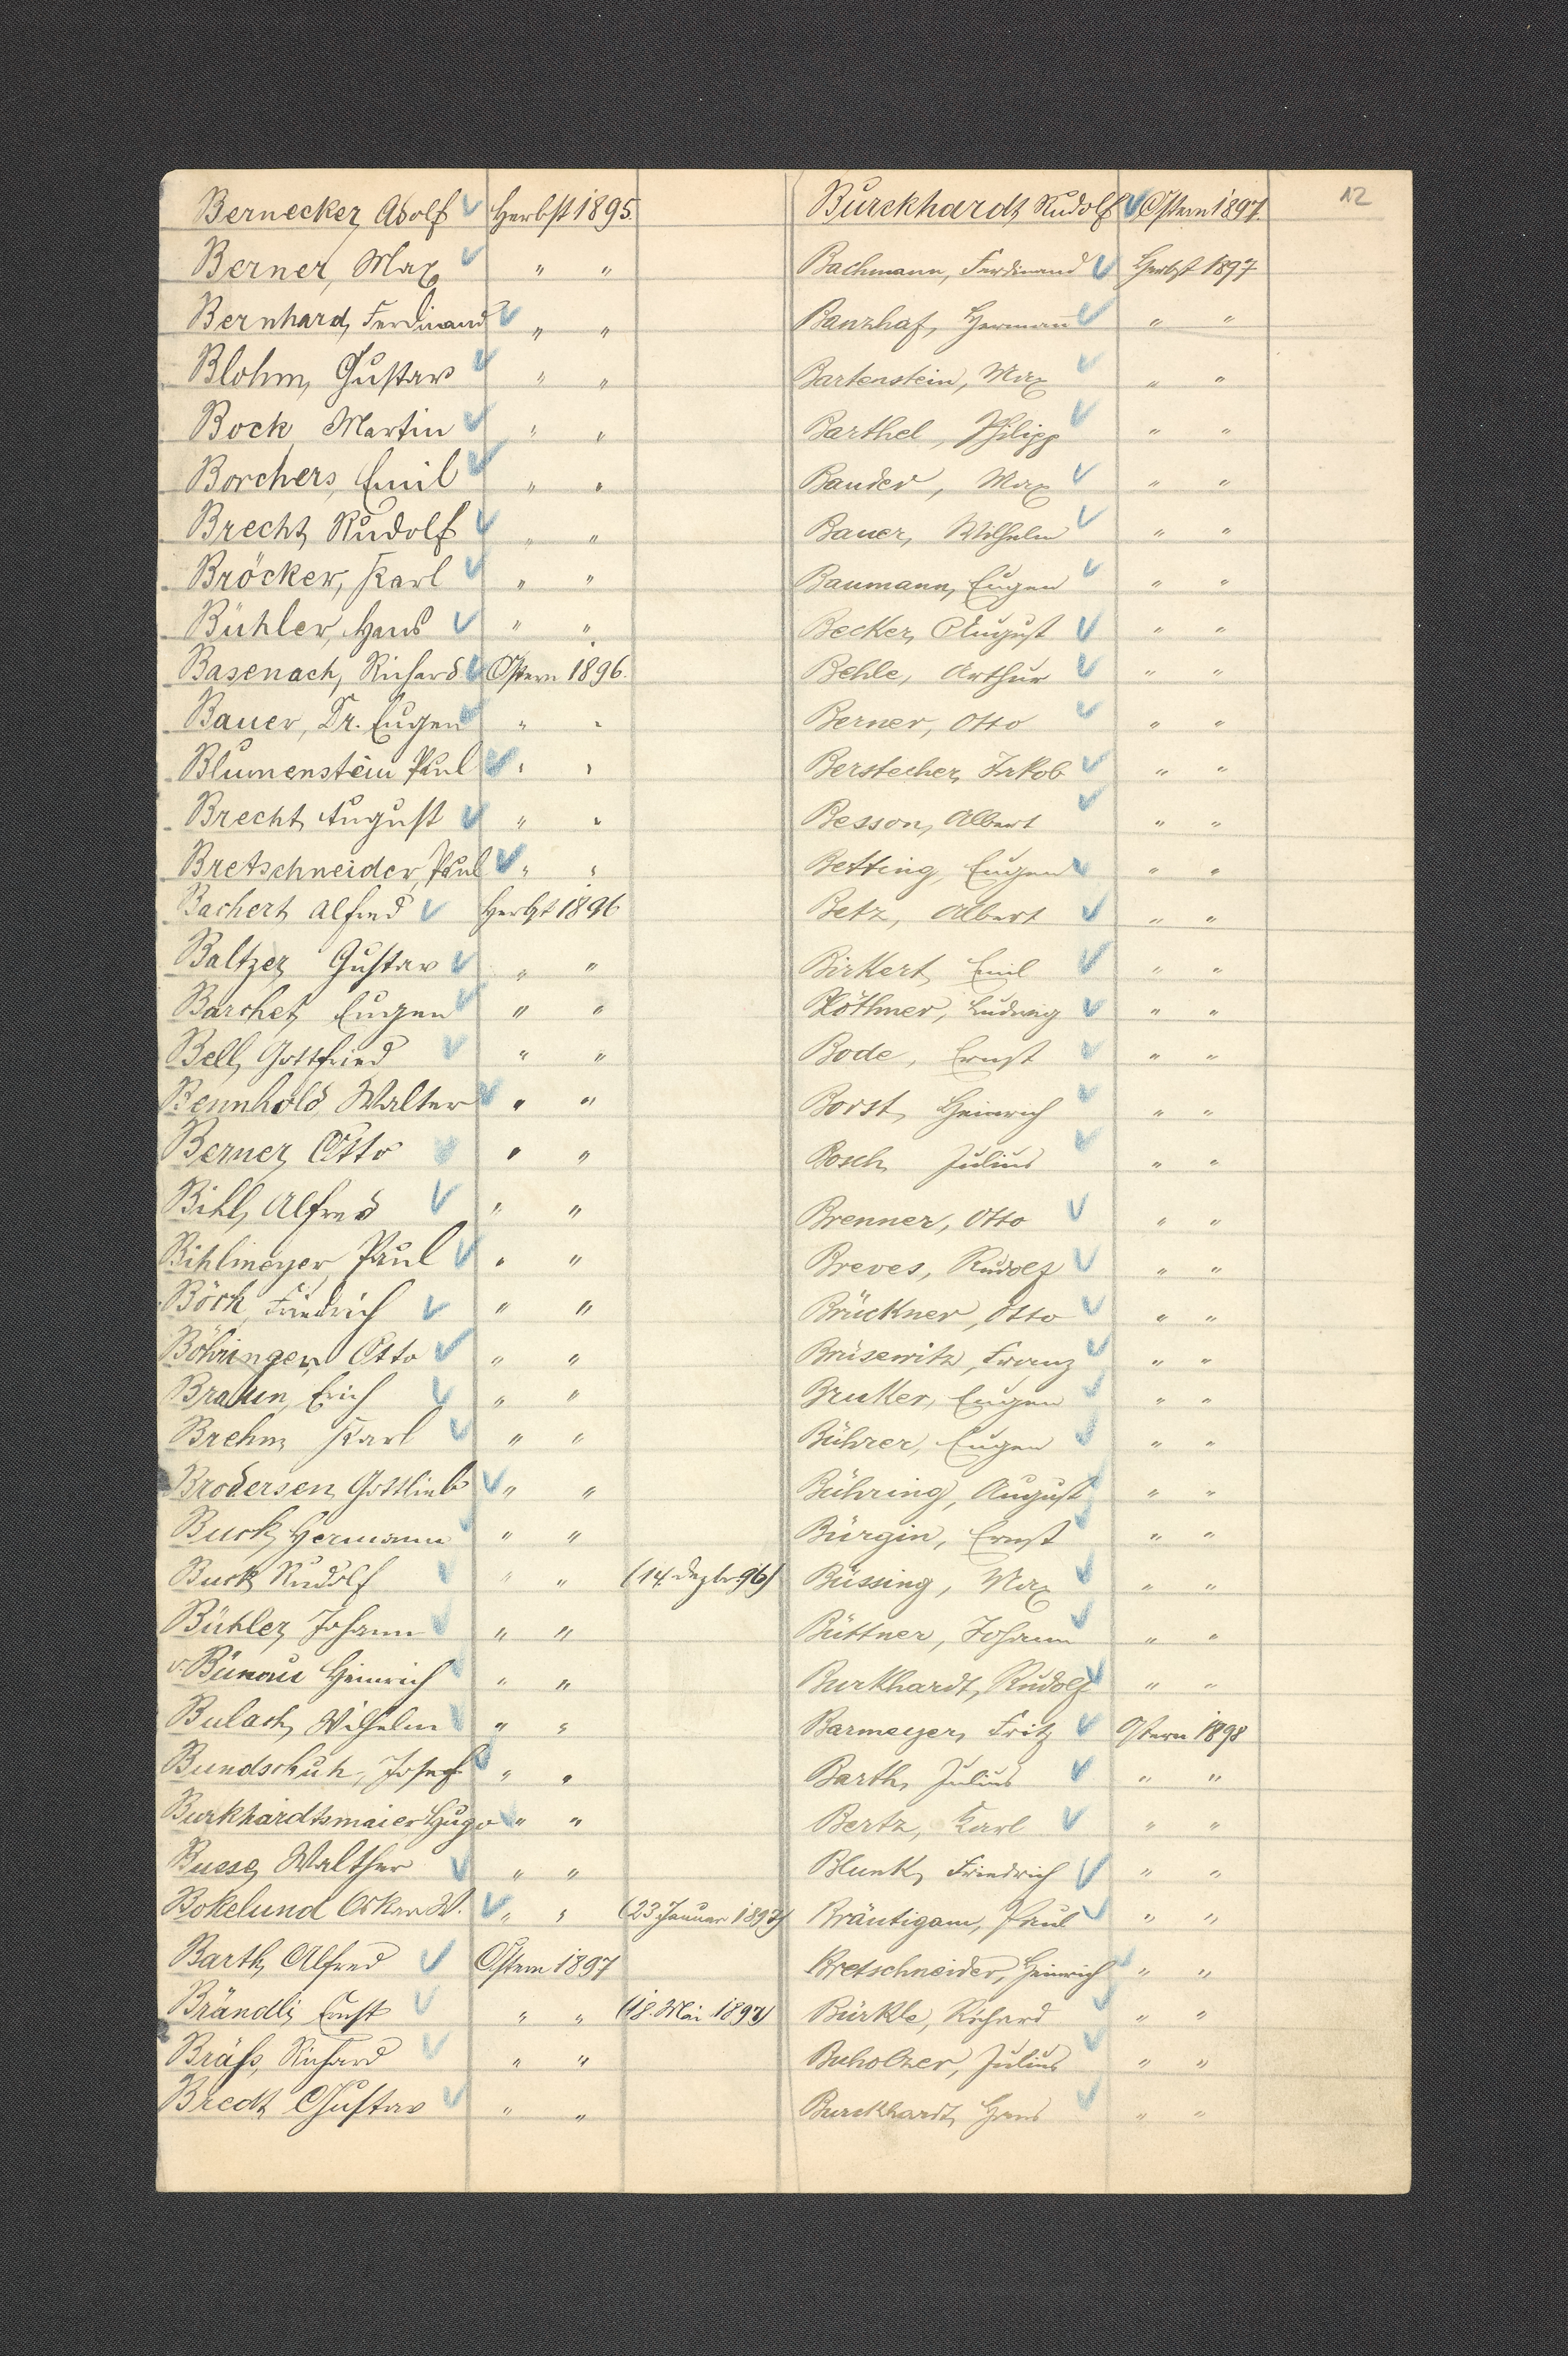 12
Bernecker, Adolf Herbst 1895.
Berner, Max " "
Bernhard, Ferdinand " "
Blohm, Gustav " "
Bock, Martin " "
Borchers, Emil " "
Brecht, Rudolf " "
Bröcker, Karl " "
Bühler, Hans " "
Basenach, Richard Ostern 1896.
Bauer, Dr. Eugen " "
Blumenstein Paul " "
Brecht, August " "
Bretschneider, Paul " "
Bachert, Alfred Herbst 1896
Baltzer, Gustav " "
Barchet, Eugen " "
Bell, Gottfried " "
Bennhold, Walter " "
Berner, Otto " "
Bihl, Alfred " "
Bihlmeyer, Paul " "
Böck, Friedrich " "
Böhringer, Otto " "
Braun, Erich " "
Brehm, Karl " "
Brodersen, Gottlieb " "
Buck, Hermann " "
Buck, Rudolf " " (14. Dezbr. 96)
Bühler, Johann " "
v. Bünau Heinrich " "
Bulach, Wilhelm " "
Bundschuh, Josef " "
Burkhardtsmaier Hugo " "
Busse, Walther " "
Bokelund Oskar W. " " (23. Januar 1897)
Barth, Alfred Ostern 1897
Brändli, Ernst " " (18. Mai 1897)
Bräss, Richard " "
Bredt, Gustav " "
Burckhardt, Rudolf Ostern 1897.
Bachmann, Ferdinand Herbst 1897
Banzhaf, Hermann " "
Bartenstein, Max " "
Barthel, Philipp " "
Bauder, Max " "
Bauer, Wilhelm " "
Baumann, Eugen " "
Becker, August " "
Behle, Arthur " "
Berner, Otto " "
Berstecher, Jakob " "
Besson, Albert " "
Betting, Eugen " "
Betz, Albert " "
Birkert, Emil " "
Böthner, Ludwig " "
Bode, Ernst " "
Borst, Heinrich " "
Bosch, Julius " "
Brenner, Otto " "
Breves, Rudolf " "
Brückner, Otto " "
Brüsewitz, Franz " "
Bruker, Eugen " "
Bührer, Eugen " "
Bühring, August " "
Bürgin, Ernst " "
Büssing, Max " "
Büttner, Johann " "
Burkhardt, Rudolf " "
Barmeyer, Fritz Ostern 1898
Barth, Julius " "
Bertz, Karl " "
Blunk, Friedrich " "
Bräutigam, Paul " "
Bretschneider, Heinrich " "
Bürkle, Richard " "
Buholzer, Julius " "
Burckhardt, Hans " "